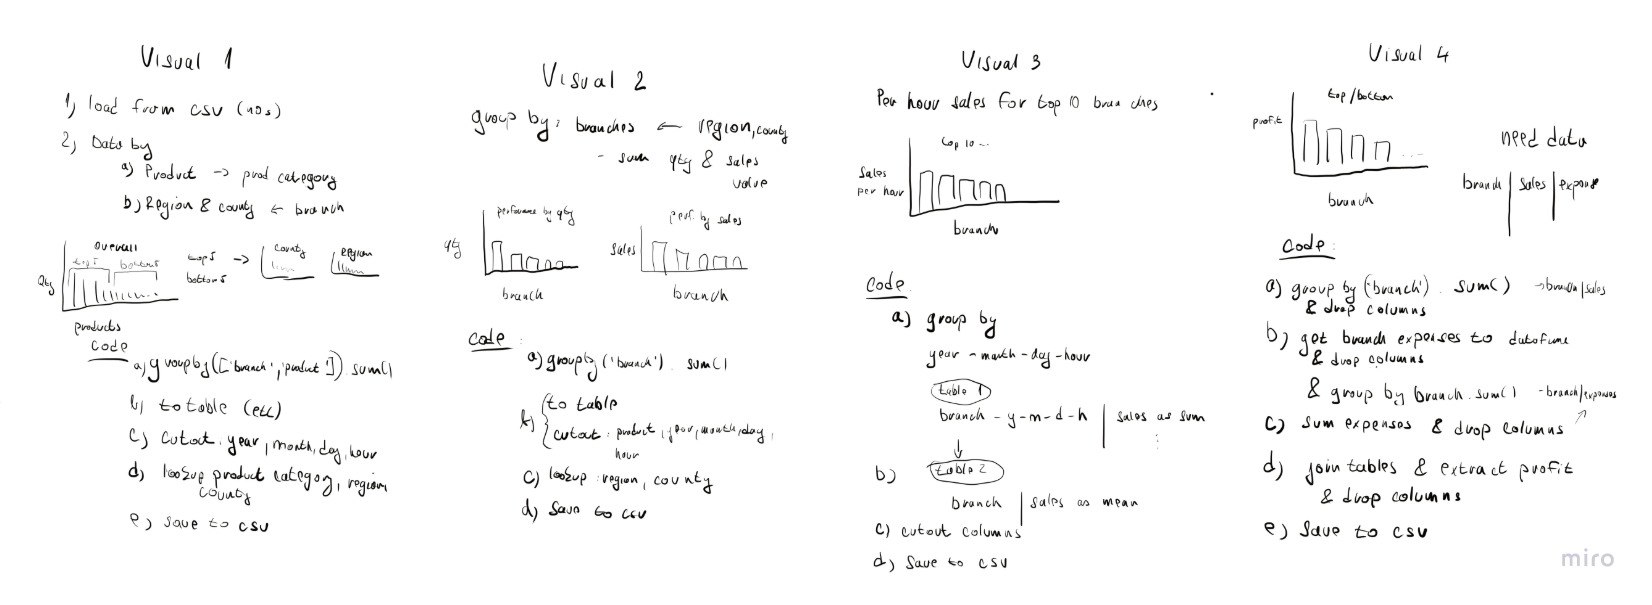 Visual 1
1) load from csv (10s)
2) Data by
a) Product -> prod category
b) Region & county <- branch
overall
top5 bottom5
Qty
products
top5 ->
bottom5
county
region
code
a) groupby(['branch','product']).sum()
b) to table (etc)
c) cutout: year, month, day, hour
d) lookup product category, region,
county
e) save to csv
Visual 2
group by: branches <- region, county
- sum qty & sales
value
performance by qty
qty
branch
perf. by sales
sales
branch
code:
a) groupby('branch').sum()
b) to table
cutout: product, year, month, day,
hour
c) lookup: region, county
d) Save to csv
Visual 3
Per hour sales for top 10 branches
top 10 ...
Sales
per hour
branch
Code
a) group by
year - month - day - hour
table 1
branch - y - m - d - h | sales as sum
b) table 2
branch | sales as mean
c) cutout columns
d) Save to csv
Visual 4
top/bottom
profit
branch
need data
branch | sales | expense
Code:
a) group by ('branch').sum() -> branch/sales
& drop columns
b) get branch expenses to dataframe
& drop columns
& group by branch.sum() - branch/expenses
c) sum expenses & drop columns
d) join tables & extract profit
& drop columns
e) Save to csv
miro